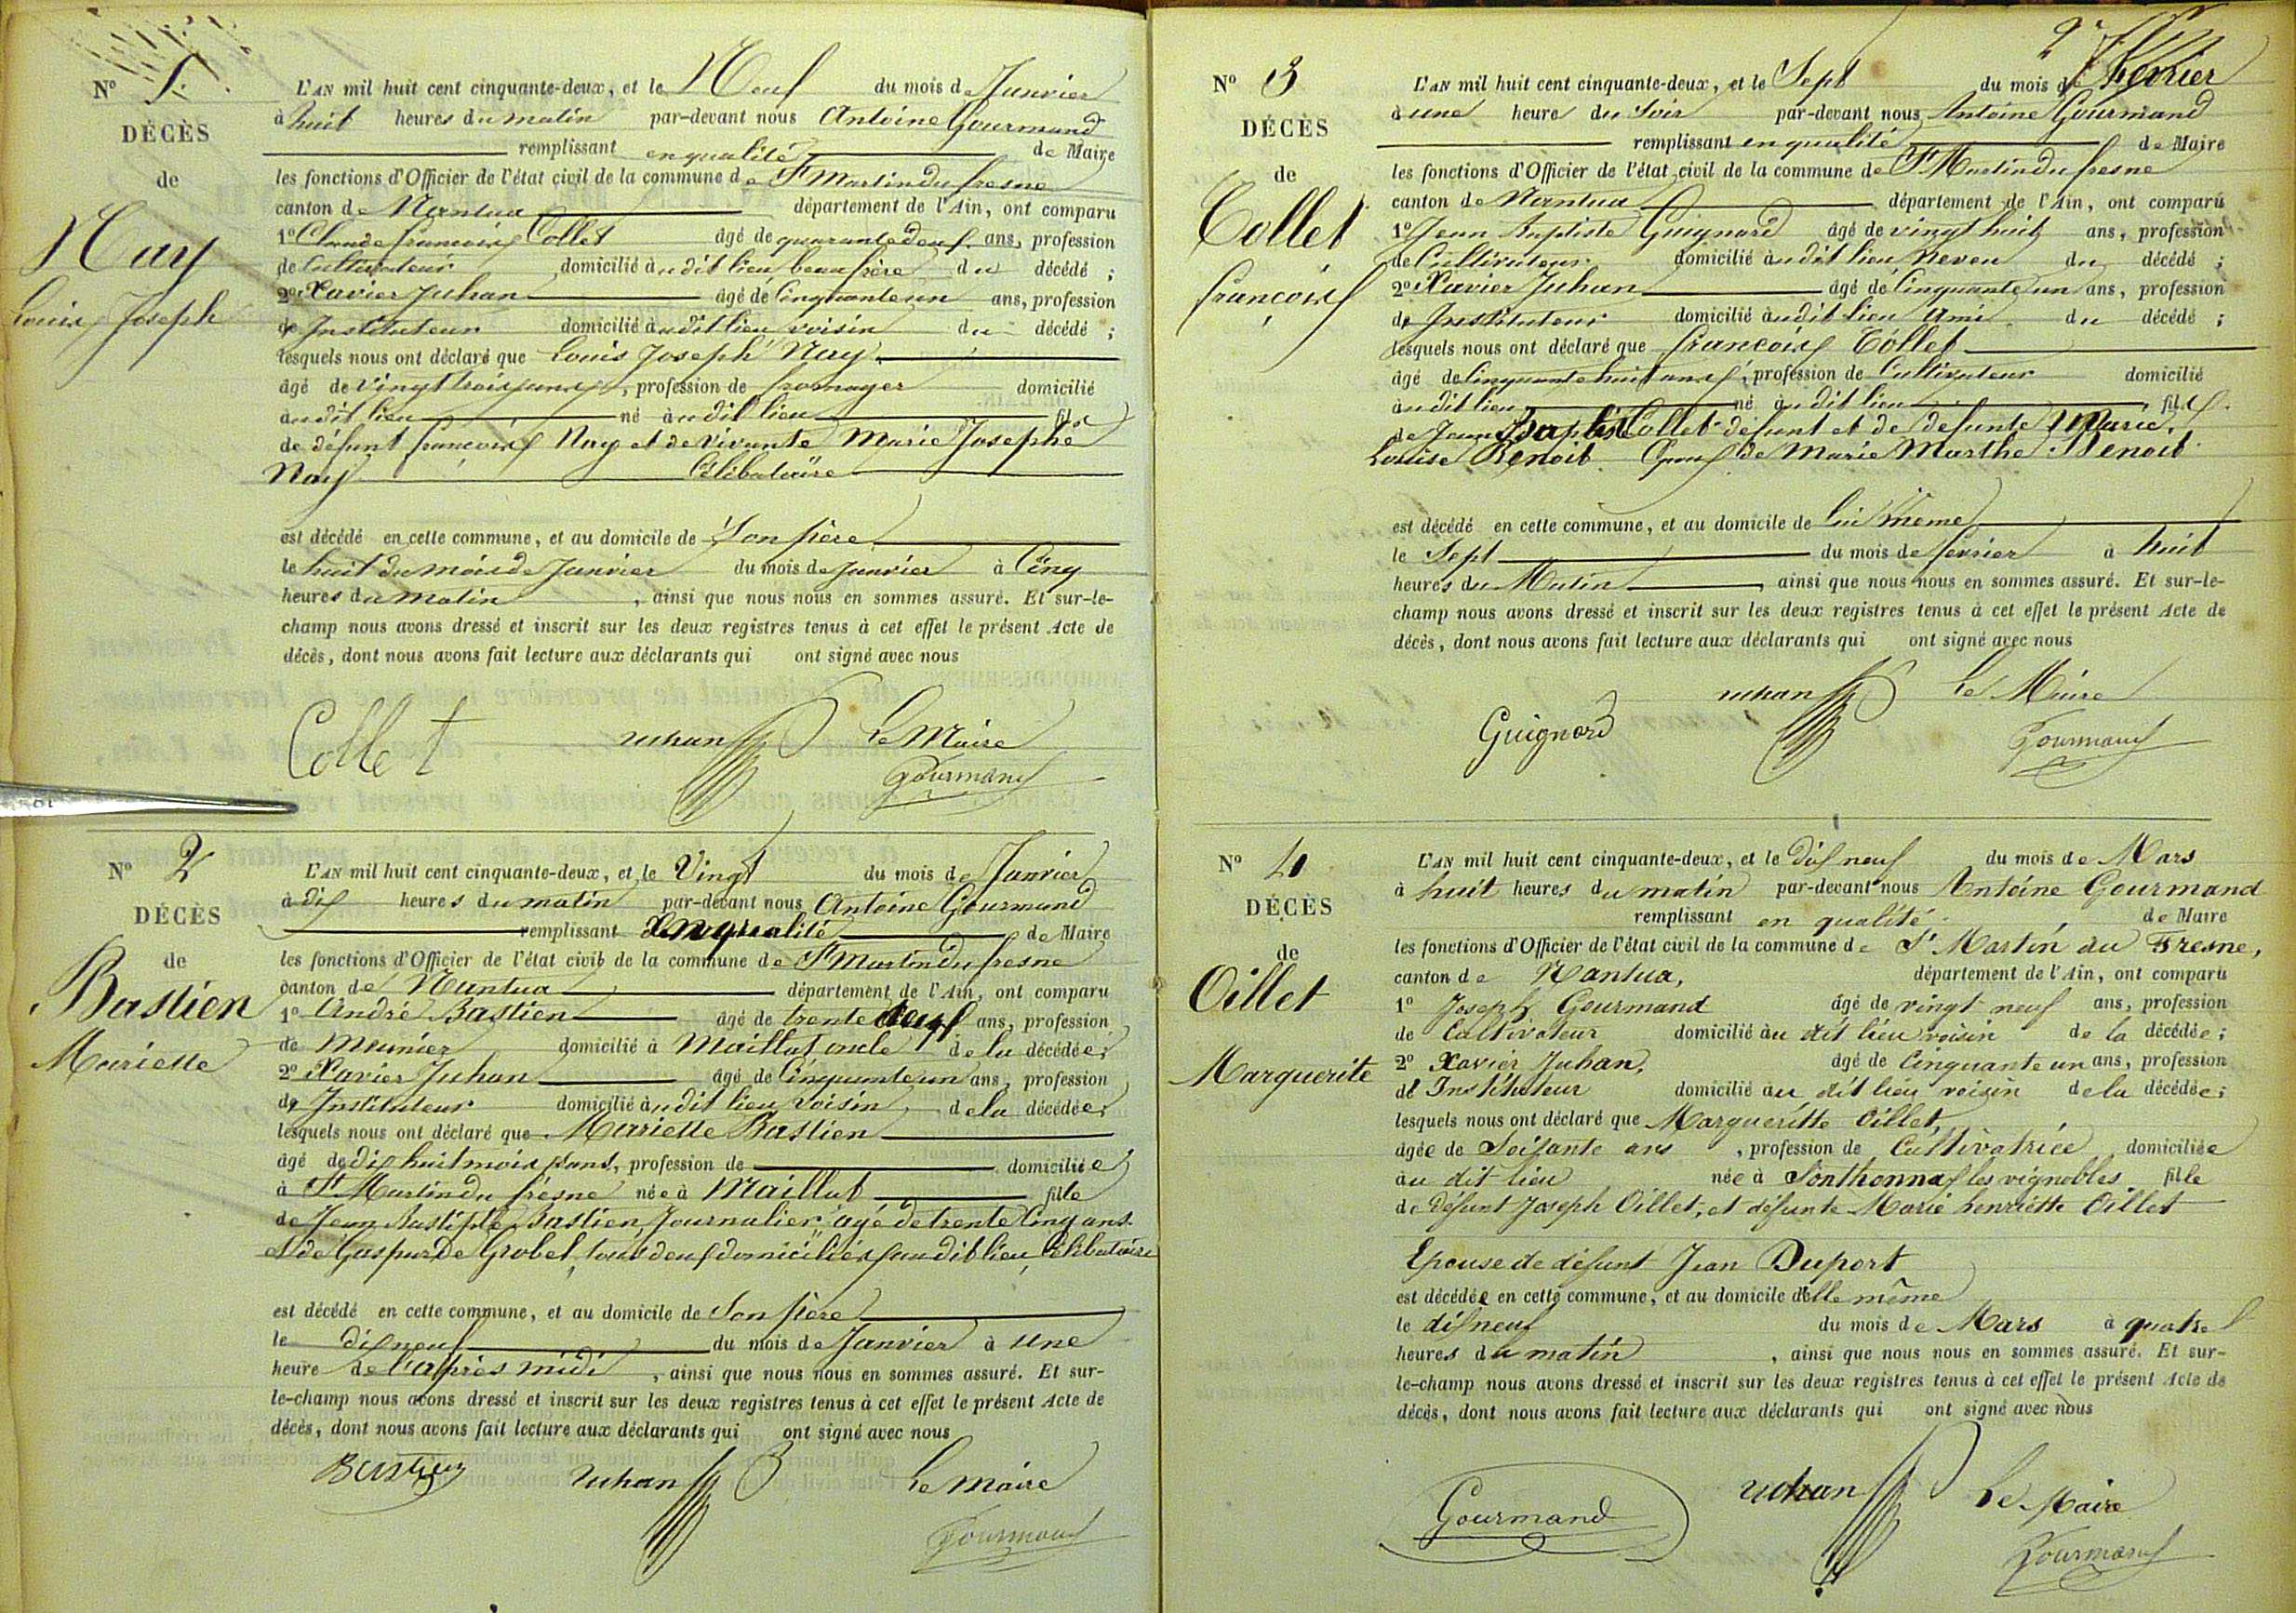 N° 1.
DÉCÈS
de
Nay
Louis Joseph
L'AN mil huit cent cinquante-deux, et le Neuf du mois de Janvier
à huit heures du matin par-devant nous Antoine Gourmand
remplissant en qualité de Maire
les fonctions d'Officier de l'état civil de la commune de St Martin du fresne
canton de Nantua département de l'Ain, ont comparu
1° Claude françois Collet âgé de quarante deux ans, profession
de Cultivateur domicilié au dit lieu beau frère du décédé ;
2° Xavier Juhan âgé de Cinquante un ans, profession
de Instituteur domicilié au dit lieu voisin du décédé ;
lesquels nous ont déclaré que Louis Joseph Nay
âgé de vingt trois ans, profession de fromager domicilié
au dit lieu né au dit lieu fils
de défunt françois Nay et de vivante Marie Josephe
Nay Célibataire
est décédé en cette commune, et au domicile de Son père
le huit du mois de Janvier du mois de Janvier à Cinq
heures du matin, ainsi que nous nous en sommes assuré. Et sur-le-
champ nous avons dressé et inscrit sur les deux registres tenus à cet effet le présent Acte de
décès, dont nous avons fait lecture aux déclarants qui ont signé avec nous
Collet Juhan Le Maire
Gourmand
N° 2
DÉCÈS
de
Bastien
Mariette
L'AN mil huit cent cinquante-deux, et le Vingt du mois de Janvier
à dix heures du matin par-devant nous Antoine Gourmand
remplissant en qualité de Maire
les fonctions d'Officier de l'état civil de la commune de St Martin du fresne
canton de Nantua département de l'Ain, ont comparu
1° André Bastien âgé de trente ans, profession
de Meunier domicilié à Maillat oncle de la décédée ;
2° Xavier Juhan âgé de Cinquante un ans, profession
de Instituteur domicilié au dit lieu voisin de la décédée ;
lesquels nous ont déclaré que Mariette Bastien
âgé de dix huit mois, profession de domiciliée
à St Martin du frésne née à Maillat fille
de Jean Bastien, Journalier, âgé de trente Cinq ans
et de Gasparde Grobel, tous deux domiciliés au dit lieu, Célibataire
est décédé en cette commune, et au domicile de Son père
le dix neuf du mois de Janvier à une
heure de l'après midi, ainsi que nous nous en sommes assuré. Et sur-
le-champ nous avons dressé et inscrit sur les deux registres tenus à cet effet le présent Acte de
décès, dont nous avons fait lecture aux déclarants qui ont signé avec nous
Bastien Juhan Le Maire
Gourmand
2
N° 3
DÉCÈS
de
Collet
françois
L'AN mil huit cent cinquante-deux, et le Sept du mois de Février
à une heure du Soir par-devant nous Antoine Gourmand
remplissant en qualité de Maire
les fonctions d'Officier de l'état civil de la commune de St Martin du fresne
canton de Nantua département de l'Ain, ont comparu
1° Jean Baptiste Guignard âgé de vingt huit ans, profession
de Cultivateur domicilié au dit lieu neveu du décédé ;
2° Xavier Juhan âgé de Cinquante un ans, profession
de Instituteur domicilié au dit lieu ami du décédé ;
lesquels nous ont déclaré que françois Collet
âgé de Cinquante huit ans, profession de Cultivateur domicilié
au dit lieu né au dit lieu fils
de Jean Baptiste Collet defunt et de defunte Marie
Louise Benoit Epoux de Marie Marthe Benoit
est décédé en cette commune, et au domicile de lui même
le Sept du mois de février à huit
heures du Matin, ainsi que nous nous en sommes assuré. Et sur-le-
champ nous avons dressé et inscrit sur les deux registres tenus à cet effet le présent Acte de
décès, dont nous avons fait lecture aux déclarants qui ont signé avec nous
Guignard Juhan Le Maire
Gourmand
N° 4
DÉCÈS
de
Oillet
Marguerite
L'AN mil huit cent cinquante-deux, et le dix neuf du mois de Mars
à huit heures du matin par-devant nous Antoine Gourmand
remplissant en qualité de Maire
les fonctions d'Officier de l'état civil de la commune de St Martin du Fresne,
canton de Nantua, département de l'Ain, ont comparu
1° Joseph Gourmand âgé de vingt neuf ans, profession
de Cultivateur domicilié au dit lieu voisin de la décédée ;
2° Xavier Juhan, âgé de Cinquante un ans, profession
de Instituteur domicilié au dit lieu voisin de la décédée ;
lesquels nous ont déclaré que Margueritte Oillet,
âgée de Soixante ans, profession de Cultivatrice domiciliée
au dit lieu née à Sonthonnax les vignobles fille
de défunt Joseph Oillet, et défunte Marie henriette Oillet
Epouse de défunt Jean Duport
est décédée en cette commune, et au domicile d'elle même
le dix neuf du mois de Mars à quatre
heures du matin, ainsi que nous nous en sommes assuré. Et sur-
le-champ nous avons dressé et inscrit sur les deux registres tenus à cet effet le présent Acte de
décès, dont nous avons fait lecture aux déclarants qui ont signé avec nous
Gourmand Juhan Le Maire
Gourmand